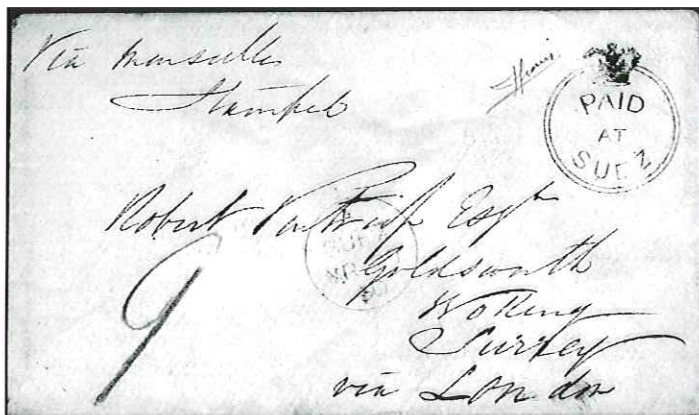 Via Marseilles
Stamped
PAID
AT
SUEZ
Robert Partridge Esqre
Goldsworth
Woking
Surrey
via London
9
SUEZ